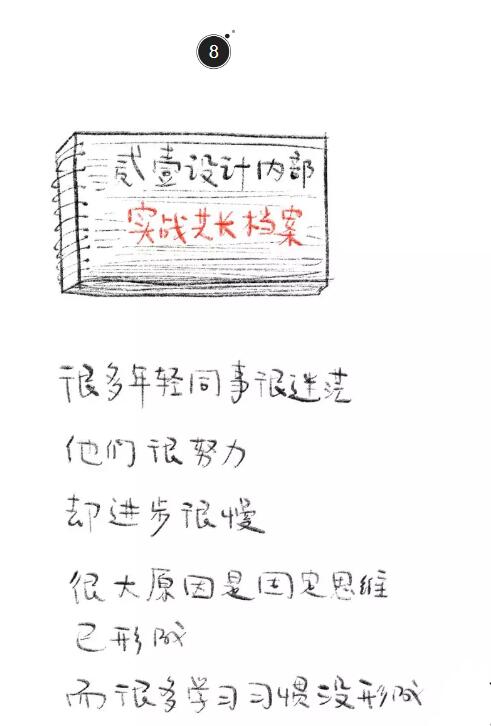 8
贰壹设计内部
实战共长档案
很多年轻同事很迷茫
他们很努力
却进步很慢
很大原因是固定思维
已形成
而很多学习习惯没形成